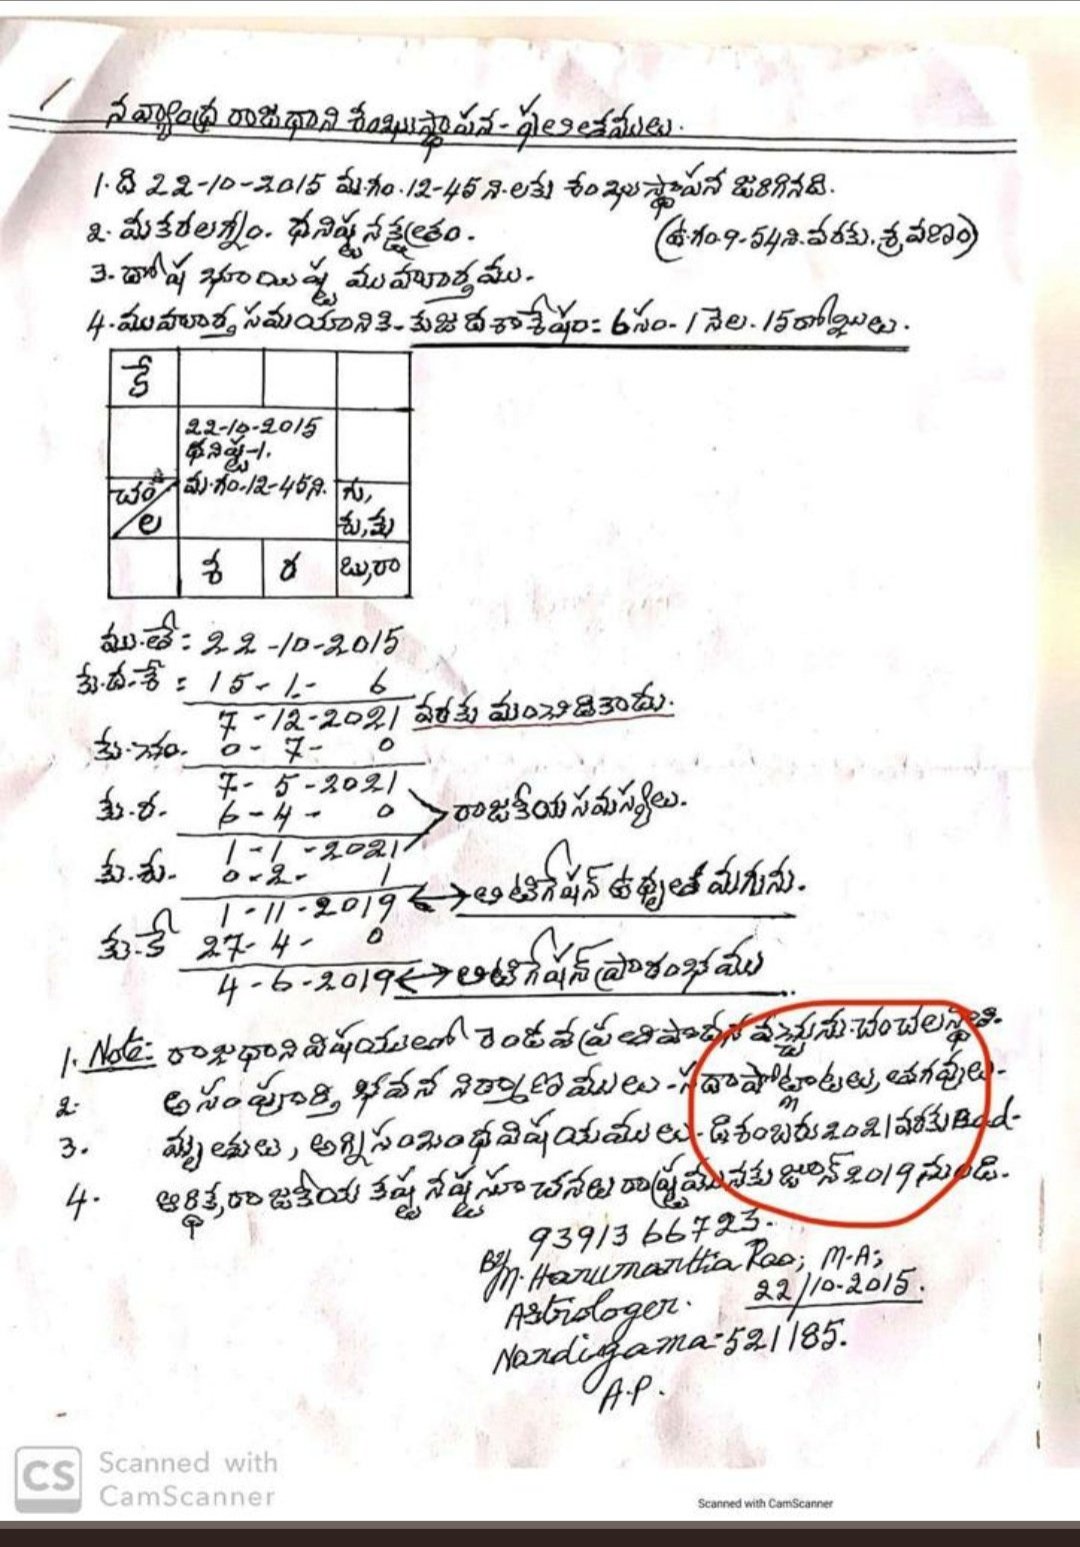 నవ్యాంధ్ర రాజధాని శంఖుస్థాపన - ఫలితాంశములు.
1. ది 22-10-2015 మ.గం.12-45 ని.లకు శంఖుస్థాపన జరిగినది.
2. మకరలగ్నం. ధనిష్ట నక్షత్రం. (ఉ.గం.9-54ని.వరకు.శ్రవణం)
3. దోష భూయిష్ట ముహూర్తము.
4. ముహూర్త సమయానికి- కుజ దశా శేషం: 6సం- 1 నెల. 15రోజులు.
కే
22-10-2015
ధనిష్ట-1.
మ.గం.12-45ని.
చం/ల
గు,
శు,
శ
ర
బు,రా
ము.తే: 22-10-2015
కు.ద.శే: 15-1- 6
7-12-2021 వరకు మంచిదికాదు.
0-7- 0
7-5-2021
కు.ర. 6-4- 0 రాజకీయ సమస్యలు.
1-1-2021
కు.శు. 0-2- 1
1-11-2019 లిటిగేషన్ ఉధృతమగును.
కు.కే 27-4- 0
4-6-2019 లిటిగేషన్ ప్రారంభము
1. Note: రాజధాని విషయములో రెండవ ప్రతిపాదన వచ్చును. చంచలస్థితి.
2. అసంపూర్తి భవన నిర్మాణములు - సదా పోట్లాటలు, తగవులు.
3. మృతులు, అగ్ని సంబంధ విషయములు - డిశంబరు 2021 వరకు Bad.
4. ఆర్థిక, రాజకీయ కష్ట నష్ట సూచనలు రాష్ట్రమునకు జూన్ 2019 నుండి.
93913 66723.
By M. Hanumantha Rao, M.A;
Astrologer. 22/10-2015.
Nandigama-521185.
A.P.
CS Scanned with
CamScanner
Scanned with CamScanner